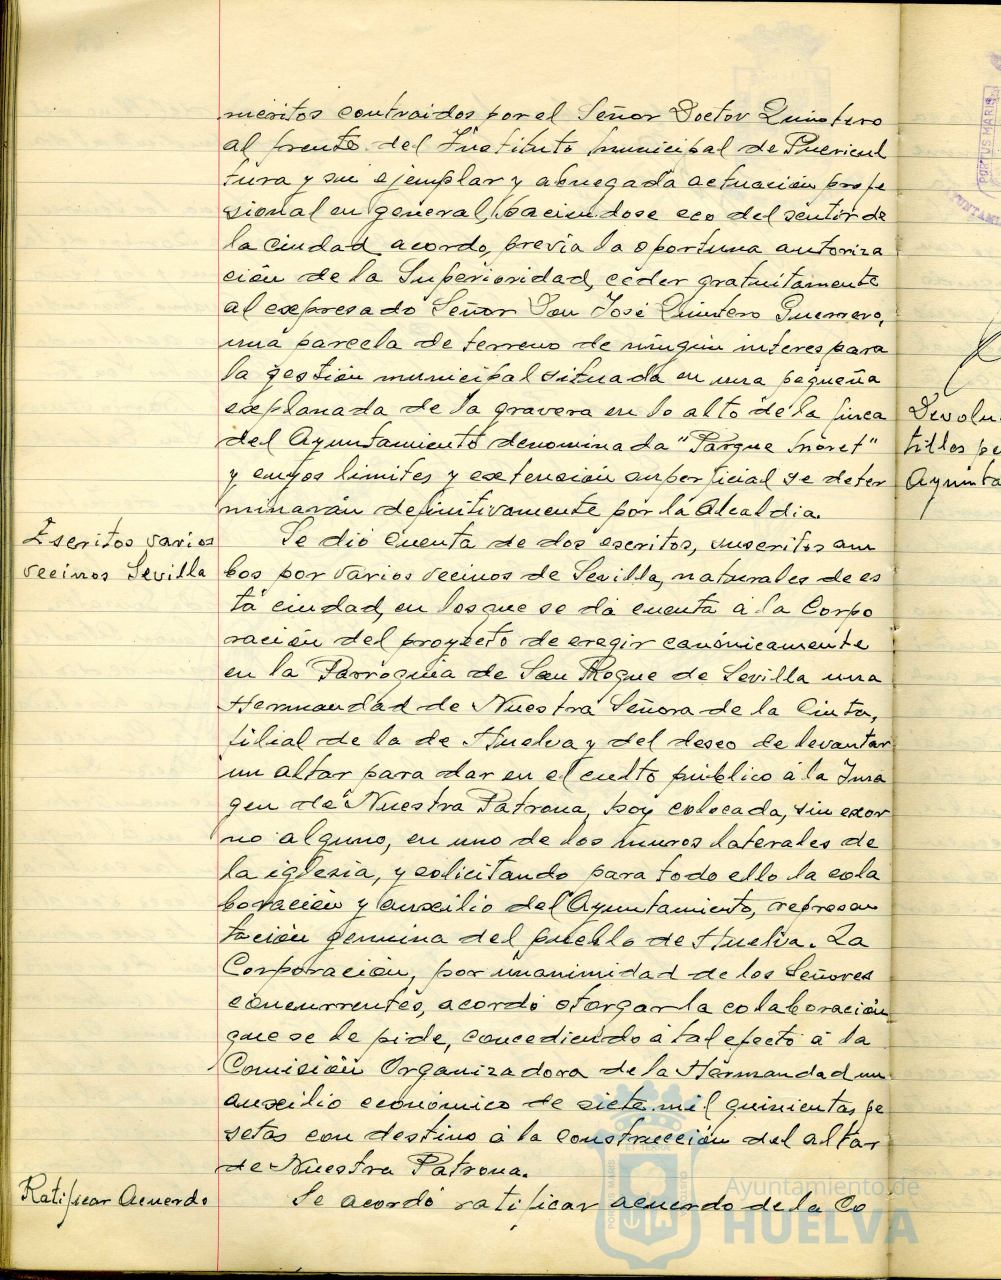 méritos contraidos por el Señor Doctor Quintero
al frente del Instituto Municipal de Puericul
tura y su ejemplar y abnegada actuación profe
sional en general, haciendose eco del sentir de
la ciudad acordo, previa la oportuna autoriza
ción de la Superioridad, ceder gratuitamente
al expresado Señor Don José Quintero Guerrero,
una parcela de terreno de ningún interes para
la gestión municipal situada en una pequeña
explanada de la gravera en lo alto de la finca
del Ayuntamiento denominada "Parque Moret"
y cuyos limites y extensión superficial se deter
minarán definitivamente por la Alcaldia.
Escritos varios
vecinos Sevilla
Se dió cuenta de dos escritos, suscritos am
bos por varios vecinos de Sevilla, naturales de es
ta ciudad, en los que se da cuenta á la Corpo
ración del proyecto de eregir canónicamente
en la Parroquia de San Roque de Sevilla una
Hermandad de Nuestra Señora de la Cinta,
filial de la de Huelva y del deseo de levantar
un altar para dar en el culto público á la Ima
gen de Nuestra Patrona, hoy colocada, sin exor
no alguno, en uno de los muros laterales de
la iglesia, y solicitando para todo ello la cola
boración y auxilio del Ayuntamiento, represen
tación genuina del pueblo de Huelva. La
Corporación, por unanimidad de los Señores
concurrentes, acordó otorgar la colaboración
que se le pide, concediendo á tal efecto á la
Comisión Organizadora de la Hermandad un
auxilio económico de siete mil quinientas pe
setas con destino á la construcción del altar
de Nuestra Patrona.
Ratificar Acuerdo
Se acordó ratificar acuerdo de la Co
Devolu
tillos pe
Ayunta
PORTUS MARIS
AYUNTAMI
Ayuntamiento de
HUELVA